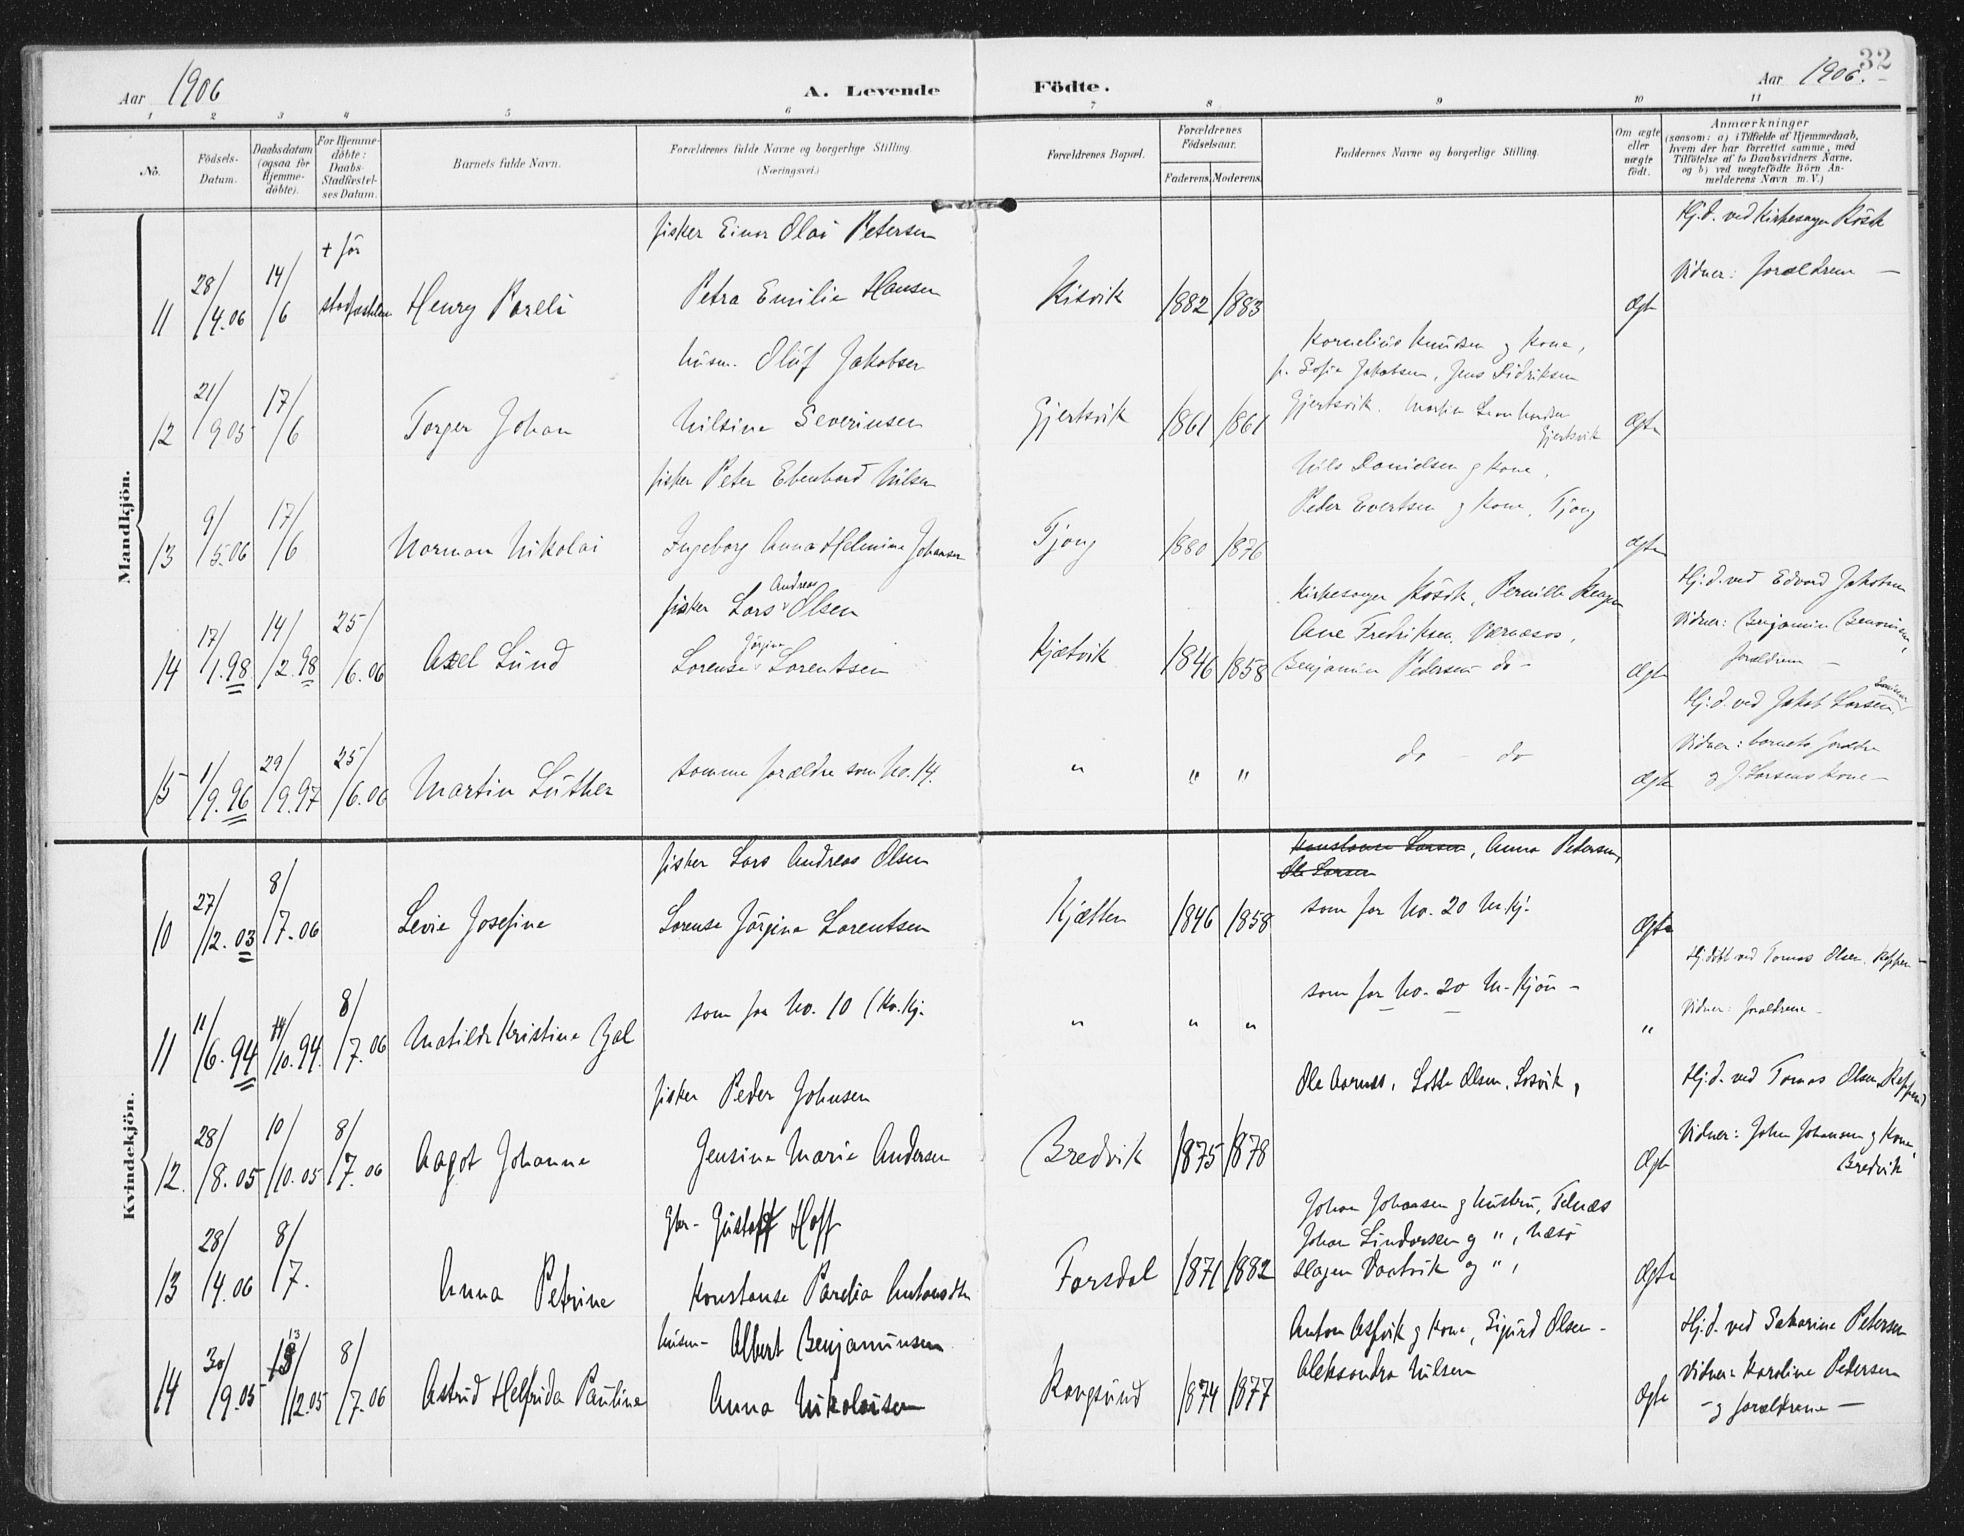 32
Aar 1906
A. Levende
Födte.
Aar 1906.
1 2 3 4 5 6 7 8 9 10 11
No.
Födsels-Datum.
Daabsdatum (ogsaa for Hjemme-döbte).
For Hjemme-döbte: Daabs-Stadfæstel-ses Datum.
Barnets fulde Navn.
Forældrenes fulde Navne og borgerlige Stilling.
(Næringsvei.)
Forældrenes Bopæl.
Forældrenes Födselsaar.
Faderens.
Moderens.
Faddernes Navne og borgerlige Stilling.
Om ægte eller uægte födt.
Anmærkninger
(saasom: a) i Tilfælde af Hjemmedaab,
hvem der har forrettet samme, med
Tilföielse af to Daabsvidners Navne,
og b) ved uægtefödte Börn An-
melderens Navn m. V.)
Mandkjön.
fisker Einar Olai Petersen
Hj.d. ved Kirkesanger Rösok
+ för
Vidner: forældrene —
11 28/4.06 14/6 Henry Pareli Petra Emilie Hansen Kisvik 1882 1883 Ægte
husm. Oluf Jakobsen
Kornelius Knudsen og Kone,
fr. Sofie Jakobsen, Jens Didriksen
12 21/9 05 17/6 Torger Johan Nilsine Severinsen Gjertsvik 1861 1861 Gjertsvik. Martin Leonhardsen Gjertsvik Ægte
fisker Peter Ebenhard Nilsen
Nils Danielsen og Kone,
Peder Evertsen og Kone, Tjong
13 9/5.06 17/6 Norman Nikolai Ingeborg Anna Helmine Johansen Tjong 1880 1876 Ægte
fisker Lars Andreas Olsen
Kirkesanger Rösok, Pernille
Hj.d. ved Edvard Jakobsen
Ane Fredriksen, Værnæsos,
Vidner: Benjamin Benonisen,
14 17/1.98 14/2.98 25/6.06 Axel Lund Lorense Jörgine Lorentsen Kjætvik 1846 1858 Benjamin Pedersen do — Ægte
forældrene —
Hj.d. ved Jakob Larsen,
Vidner: barnets forældre
15 1/9.96 29/9.97 25/6.06 Martin Luther samme forældre som No. 14. " " " do — do Ægte
og J. Larsens kone —
Kvindekjön.
fisker Lars Andreas Olsen
Konstanse Larsen, Anna Pedersen,
Ole Larsen
10 27/12.03 8/7.06 Levie Josefine Lorense Jörgine Lorentsen Kjætten 1846 1858 som for No. 20 M.kj. Ægte
Hj.döbt ved Tomas Olsen,
11 11/6.94 14/10.94. 8/7.06 Matilde Kristine som for No. 10 (Kv.kj. " " " som for No. 20 M-Kjön — "
Vidner: forældrene —
fisker Peder Johnsen
Ole Aarnes, Lotte Olsen, Losvik,
Hj.d. ved Tomas Olsen,
Vidner: Johan Johansen og Kone,
Bredvik
12. 28/8.05 10/10.05 8/7.06 Aagot Johanne Jensine Marie Andersen Bredvik 1875 1878 Ægte
Gbr- Gustaff Hoff
Johan Johansen og hustru, Telnæs
Johan Lindorsen og ", Næsö
13 28/4.06 8/7. Anna Petrine Konstanse Parelia Forsdal 1871 1882 og ", Ægte
husm- Albert Benjaminsen
Anton Asfvik og Kone, Sigurd Olsen —
Hj.d. ved Petersen
Aleksandra Nilsen
Vidner: Karoline Pedersen
14 30/9.05 13/12.05 8/7.06 Astrid Helfrida Pauline Anna Nikolaisen Rangsund 1874 1877 Ægte
— og forældrene —